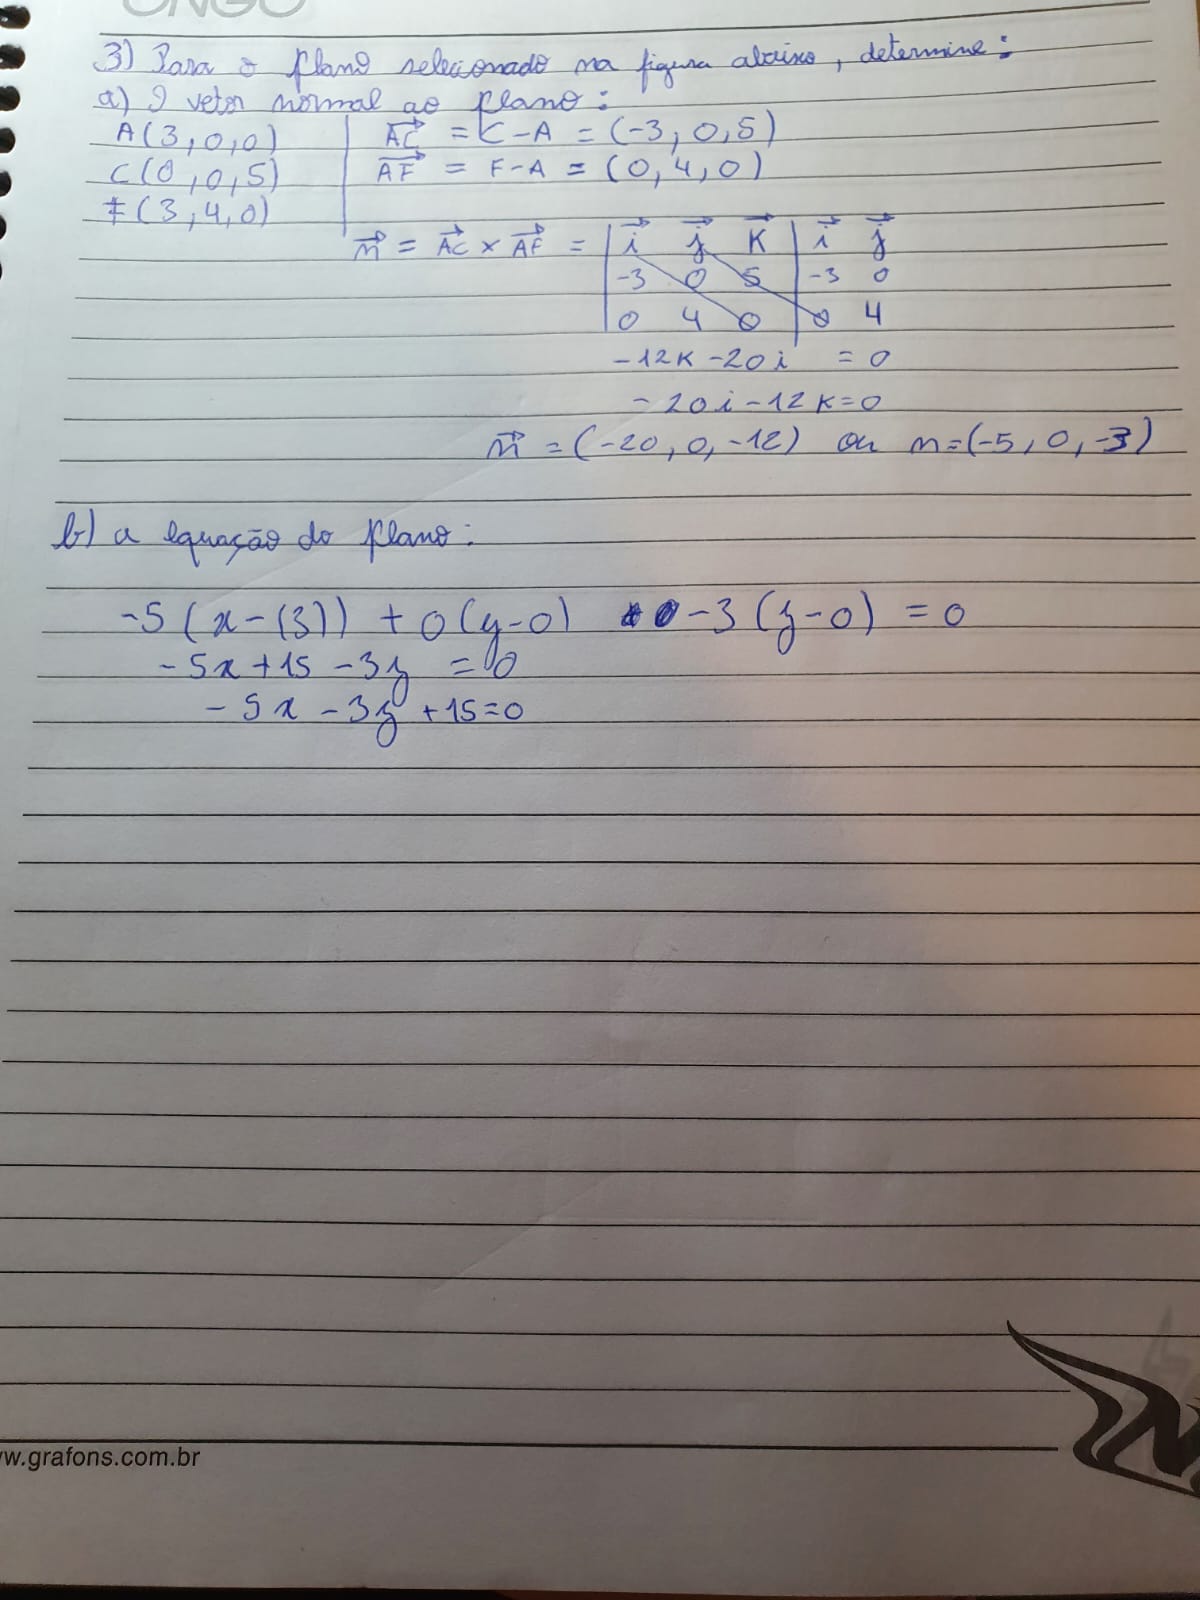 ONGO
3) Para o plano selecionado na figura abaixo, determine:
a) O vetor normal ao plano:
A(3,0,0) | AC = C-A = (-3,0,5)
C(0,0,5) | AF = F-A = (0,4,0)
F(3,4,0)
n = AC × AF = | i j K | i j
-3 0 5 | -3 0
0 4 0 | 0 4
-12K -20i = 0
-20i -12K=0
n = (-20,0,-12) ou n=(-5,0,-3)
b) a equação do plano:
-5(x-(3)) + 0(y-0) -3(z-0) = 0
-5x+15 -3z = 0
-5x -3z +15=0
w.grafons.com.br